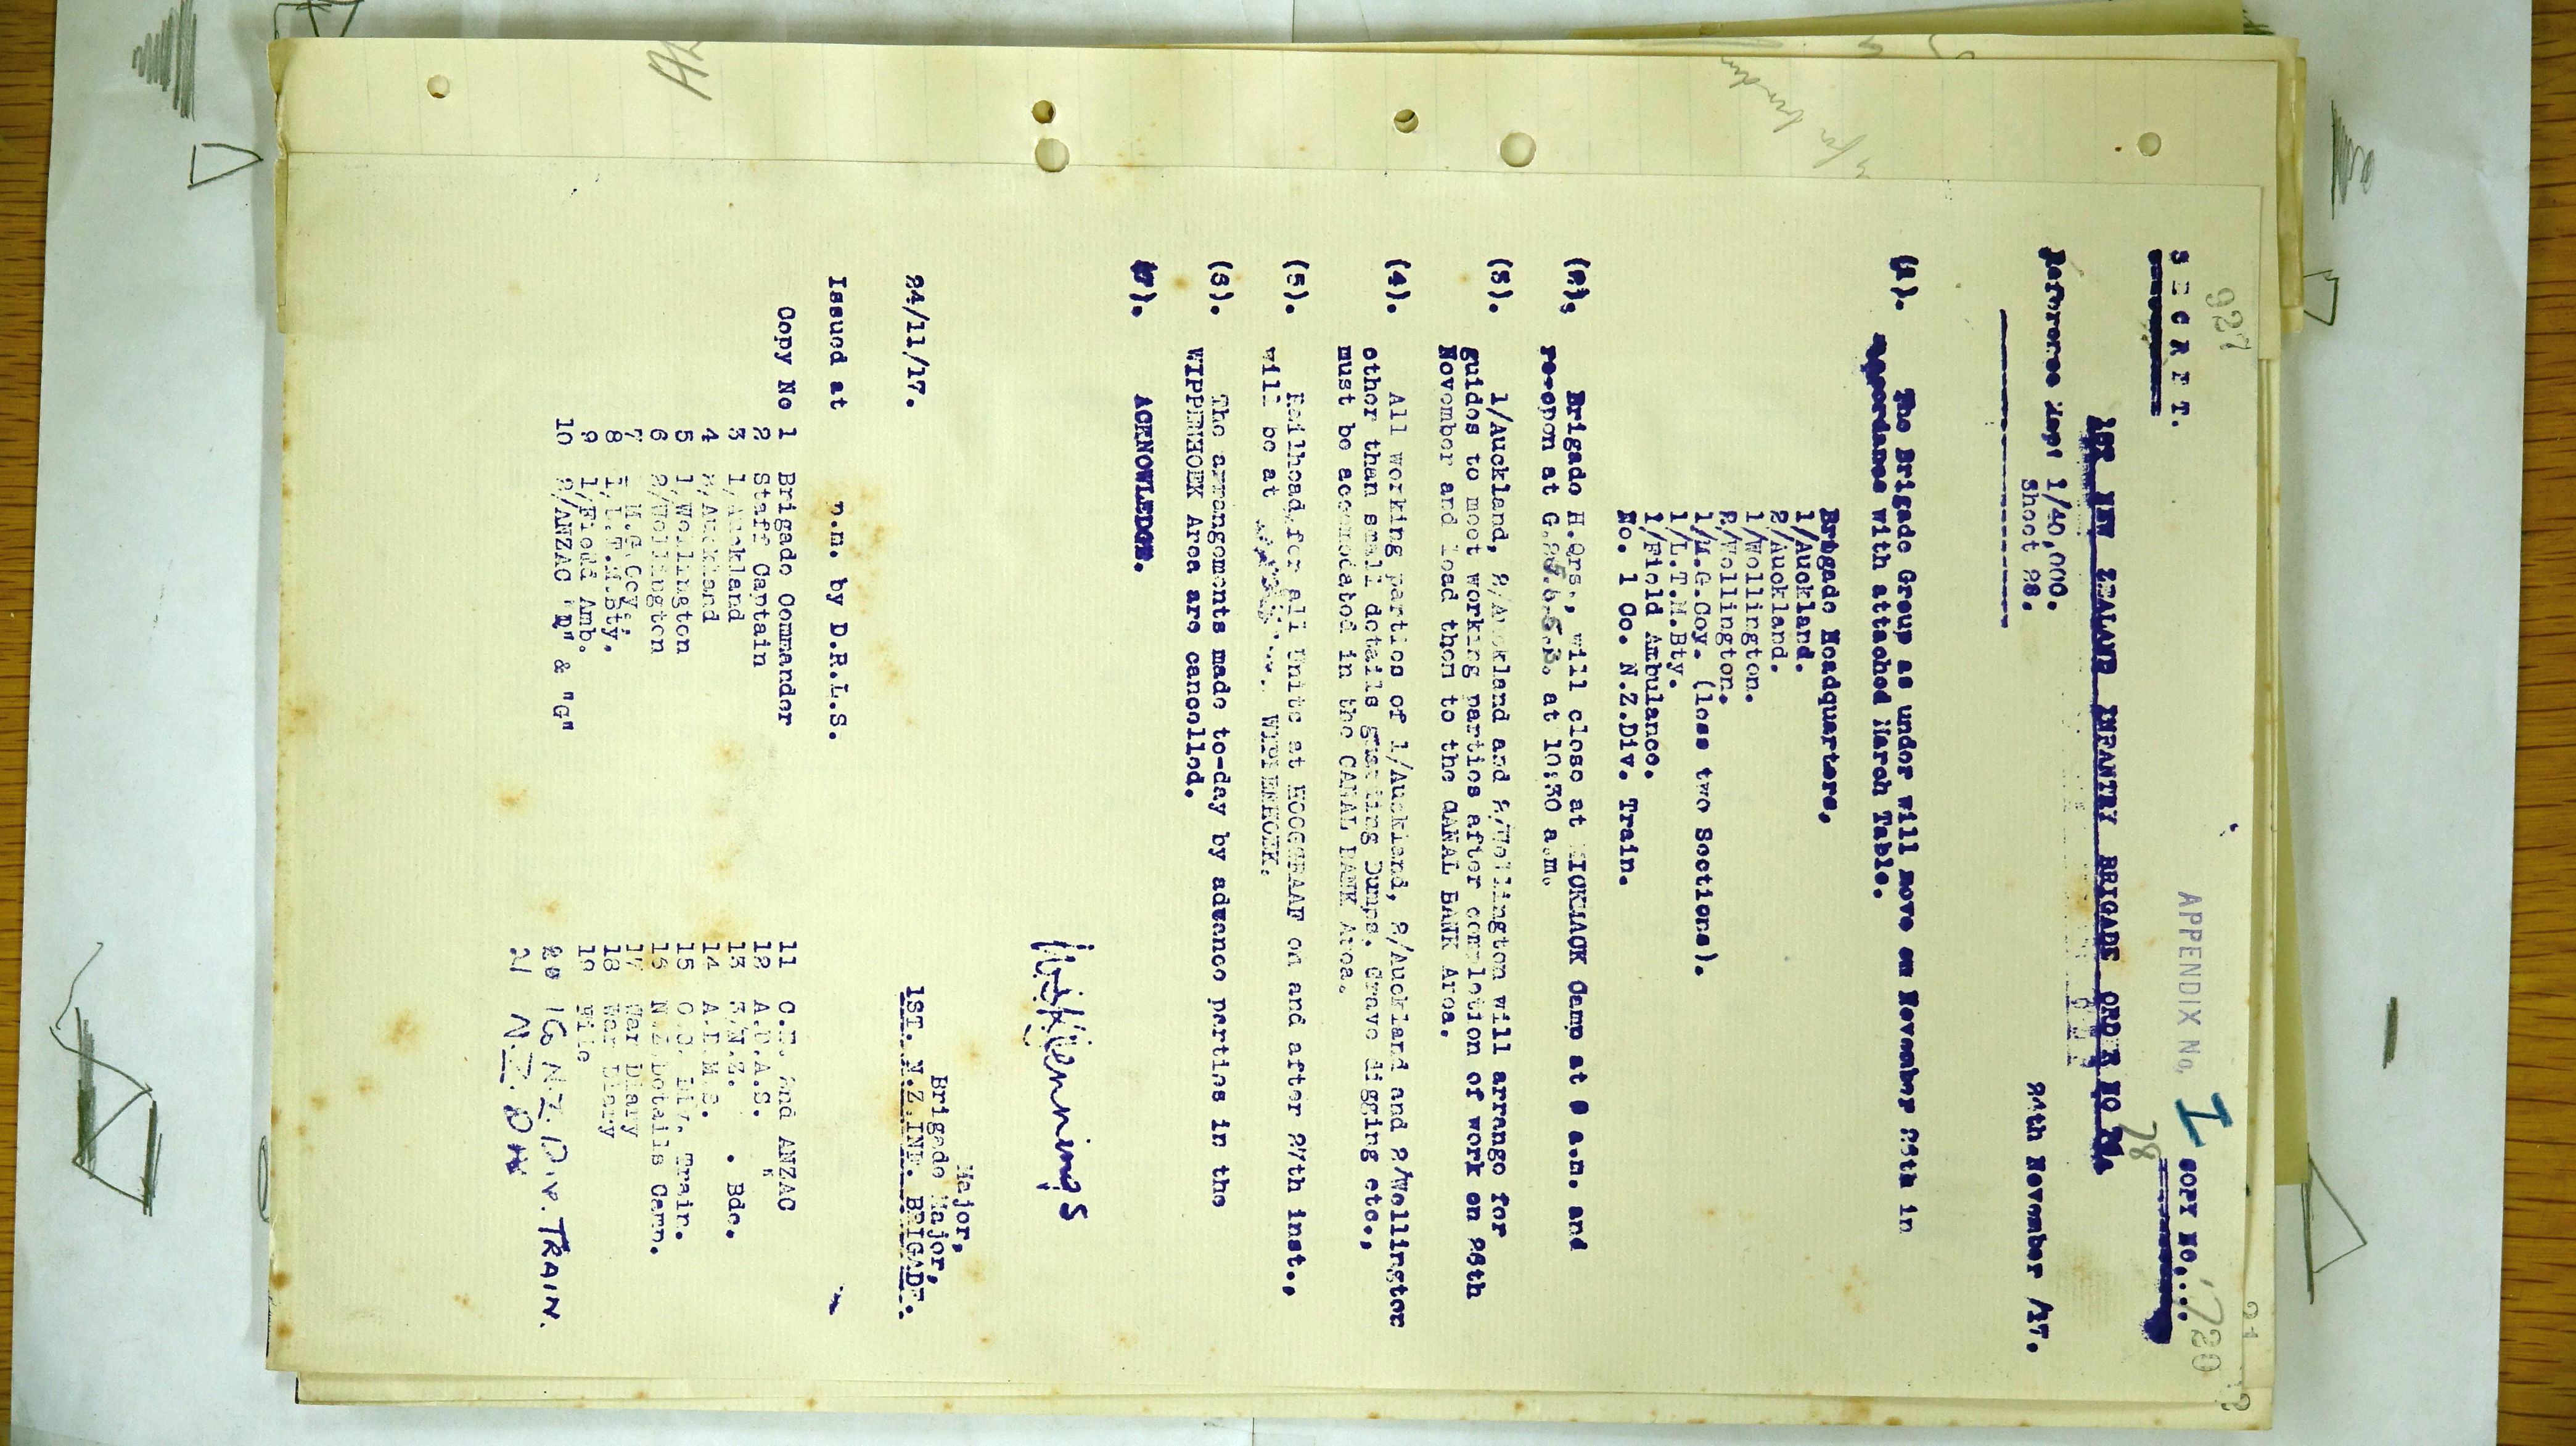 927
APPENDIX No. I
S E C R E T.
COPY NO....
1ST NEW ZEALAND INFANTRY BRIGADE ORDER NO
78
Reference Map: 1/40,000.
Sheet 28.
24th November /17.
(1). The Brigade Group as under will move on November 26th in
accordance with attached March Table.
Brigade Headquarters.
1/Auckland.
2/Auckland.
1/Wellington.
2/Wellington.
1/M.G.Coy. (less two Sections).
1/L.T.M.Bty.
1/Field Ambulance.
No. 1 Co. N.Z.Div. Train.
(2). Brigade H.Qrs., will close at MICKMACK Camp at 9 a.m. and
re-open at at 10:30 a.m.
(3). 1/Auckland, 2/Auckland and 2/Wellington will arrange for
guides to meet working parties after completion of work on 26th
November and lead them to the CANAL BANK Area.
(4). All working parties of 1/Auckland, 2/Auckland and 2/Wellington
other than small details guarding Dumps, Grave digging etc.,
must be accomodated in the CANAL BANK Area.
(5). Railhead for all Units at HOOGGRAAF on and after 27th inst.,
will be at WIPPENHOEK.
(6). The arrangements made to-day by advance parties in the
WIPPENHOEK Area are cancelled.
(7). ACKNOWLEDGE.
Major,
Brigade Major,
24/11/17. 1ST. N.Z.INF. BRIGADE.
Issued at p.m. by D.R.L.S.
Copy No 1 Brigade Commander
2 Staff Captain
3 1/Auckland
4 2/Auckland
5 1/Wellington
6 2/Wellington
7 M.G.Coy.
8 1/L.T.M.Bty.
9 1/Field Amb.
10 2/ANZAC "Q" & "G"
11 2nd ANZAC
12 "
13 3/N.Z. Bde.
14
15 Div. Train.
16 N.Z.Details Camp.
17 War Diary
18 War Diary
19 File
20 N.Z. DIV. TRAIN.
21 N.Z.